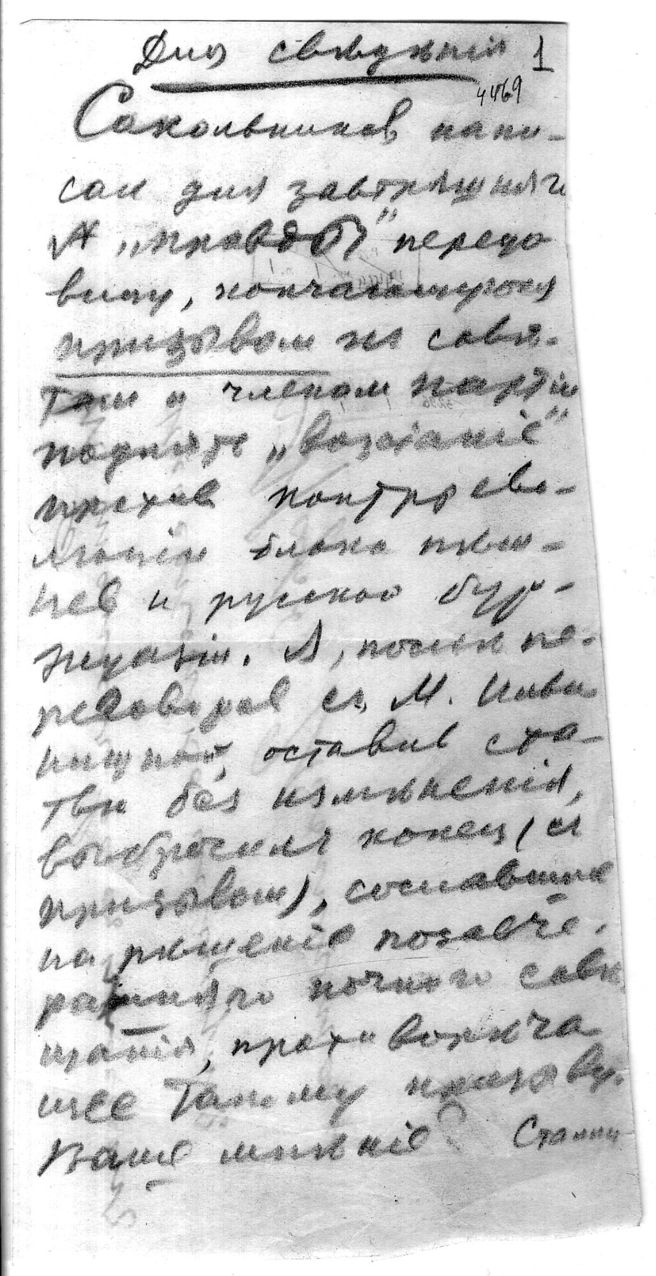 Для свѣдѣнія 1
4469
Сокольников напи-
сал для завтряшняго
№ „Правды" передо
вицу, кончающуюся
призывом къ совѣ-
там и членам партіи
поднять „возстаніе"
против контррево-
люціи блока нѣм-
цев и русской бур-
жуазіи. Я, послѣ пе-
реговоров съ М. Ильи
ничной, оставив ста-
тью без измѣненія,
выбросилъ конец (съ
призывом), сославшись
на рѣшеніе позавче-
рашняго ночного совѣ
щанія, противорѣча
щее такому призыву.
Ваше мнѣніе?
Сталин